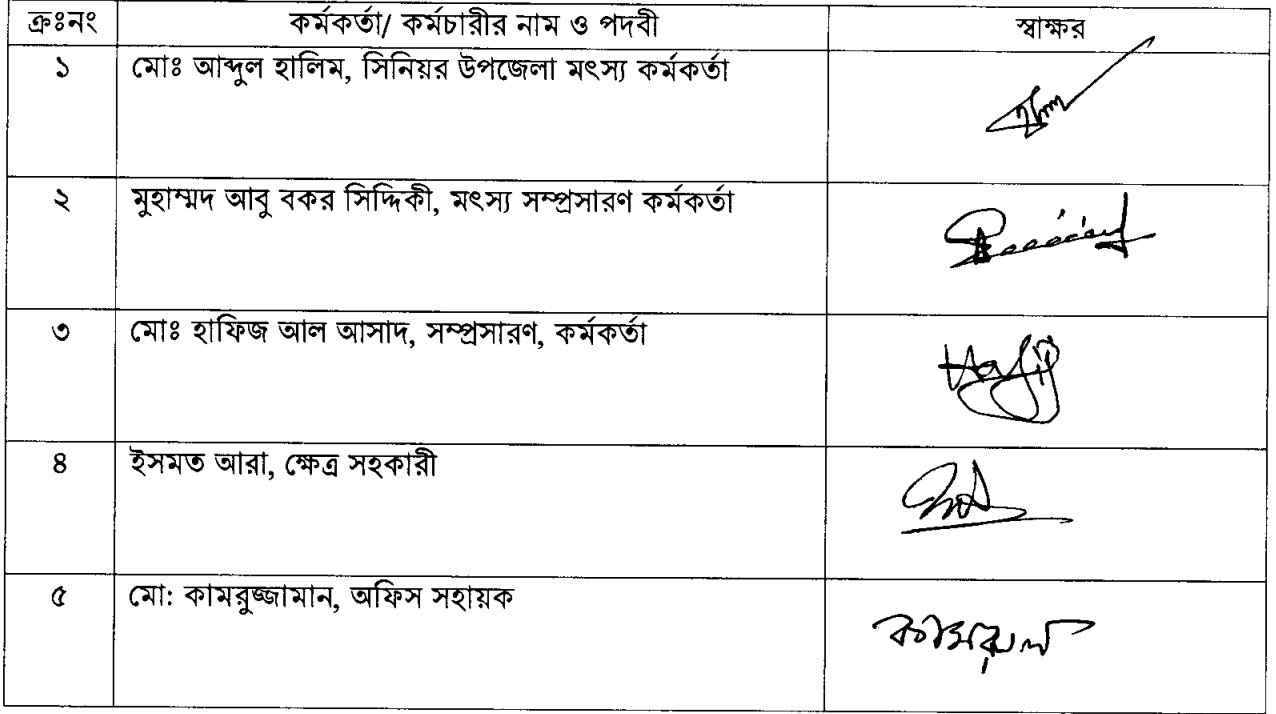 ক্রঃনং কর্মকর্তা/ কর্মচারীর নাম ও পদবী স্বাক্ষর
১ মোঃ আব্দুল হালিম, সিনিয়র উপজেলা মৎস্য কর্মকর্তা
২ মুহাম্মদ আবু বকর সিদ্দিকী, মৎস্য সম্প্রসারণ কর্মকর্তা
৩ মোঃ হাফিজ আল আসাদ, সম্প্রসারণ, কর্মকর্তা
Hafij
৪ ইসমত আরা, ক্ষেত্র সহকারী
৫ মো: কামরুজ্জামান, অফিস সহায়ক